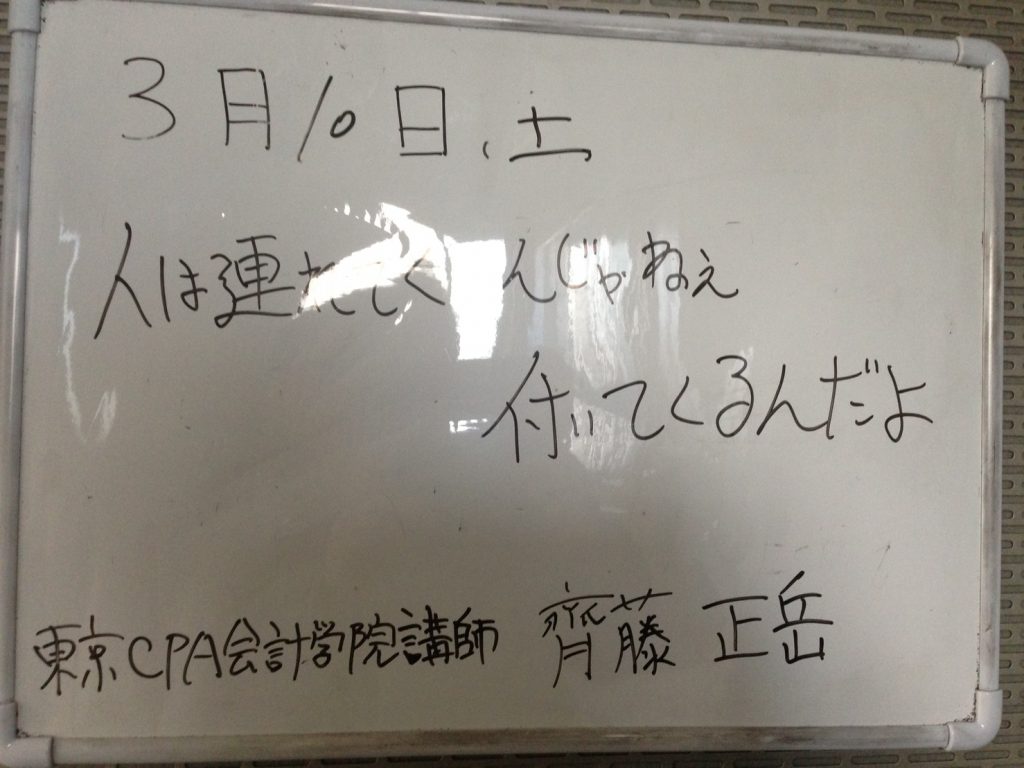 3月10日、土
人は連れてくんじゃねぇ
付いてくるんだよ
東京CPA会計学院講師 齊藤 正岳